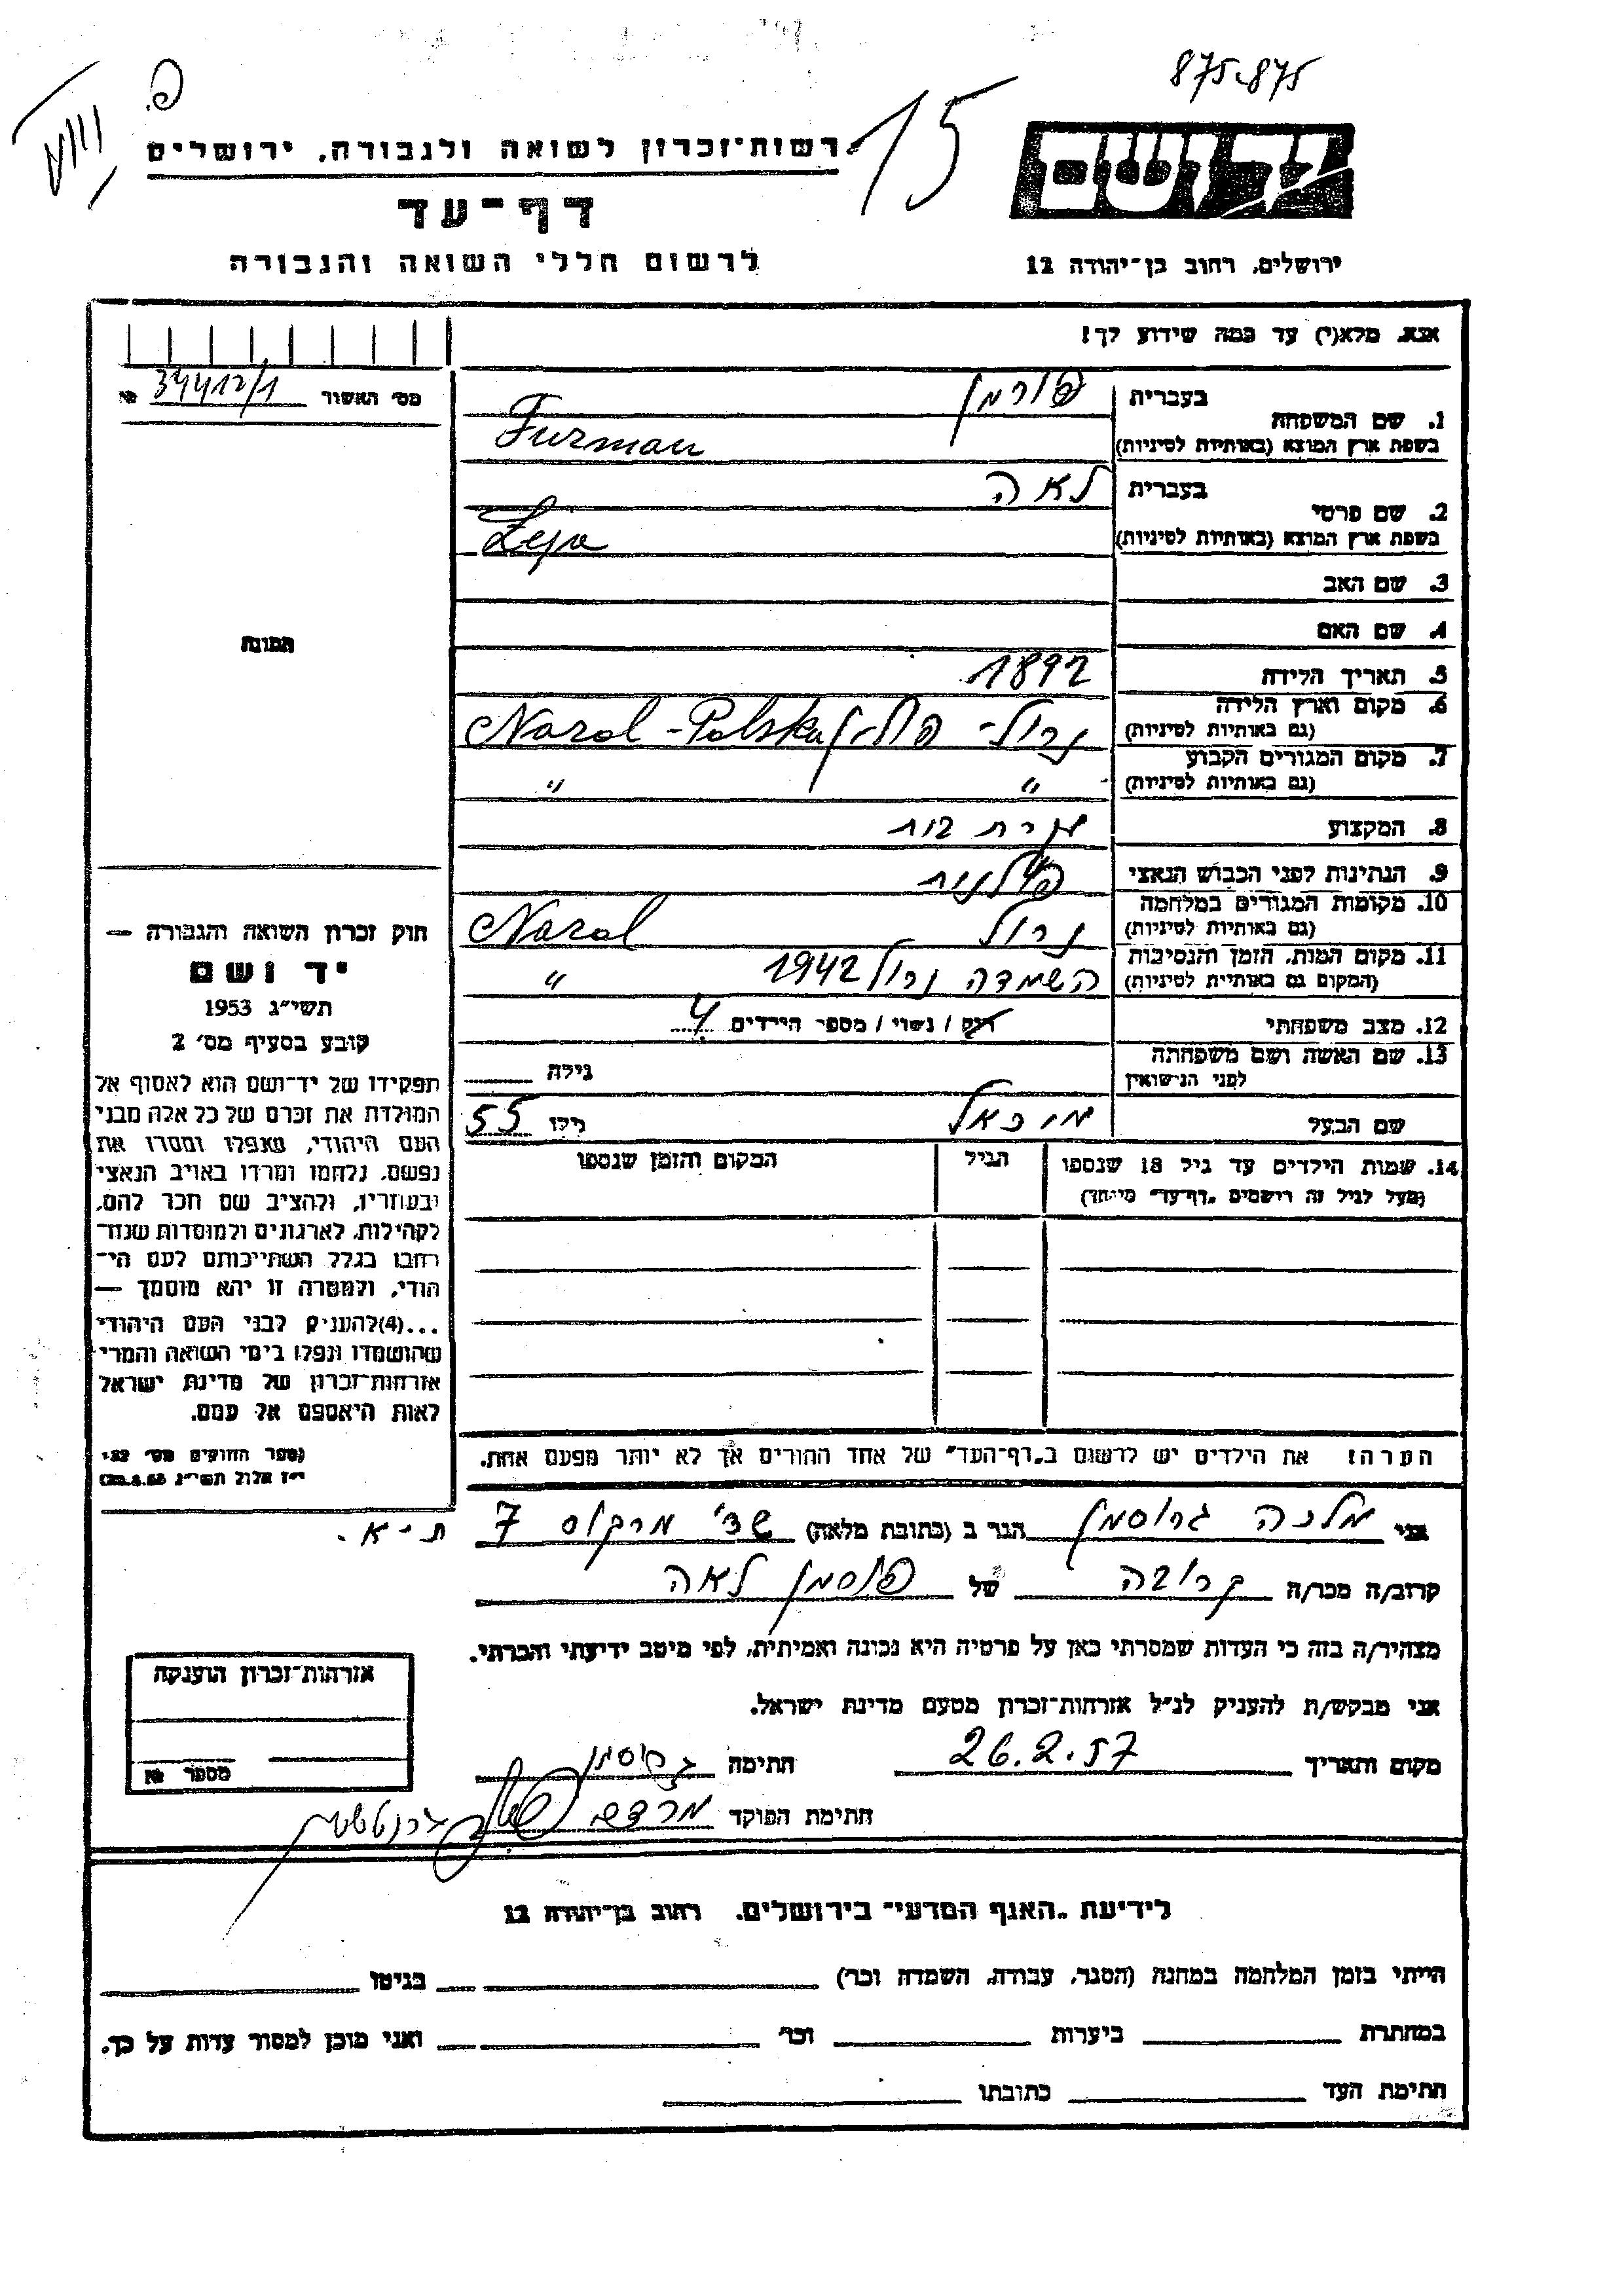 875-875
15
פ.
יד ושם
רשות־זכרון לשואה ולגבורה, ירושלים
דף־עד
לרשום חללי השואה והגבורה
ירושלים, רחוב בן־יהודה 12
אנא, מלא(י) עד כמה שידוע לך!
מס׳ האשור 34412/1 №
1. שם המשפחה בעברית פורמן
בשפת ארץ המוצא (באותיות לטיניות) Furman
2. שם פרטי בעברית לאה
בשפת ארץ המוצא (באותיות לטיניות) Leja
3. שם האב
4. שם האם
5. תאריך הלידה 1892
6. מקום וארץ הלידה (גם באותיות לטיניות) נרול - פולין Narol - Polska
7. מקום המגורים הקבוע (גם באותיות לטיניות) " "
8. המקצוע עקרת בית
9. הנתינות לפני הכבוש הנאצי פולנית
10. מקומות המגורים במלחמה (גם באותיות לטיניות) נרול Narol
11. מקום המות, הזמן והנסיבות (המקום גם באותיות לטיניות) השמדה נרול 1942 "
12. מצב משפחתי רוק / נשוי / מספר הילדים 4
13. שם האשה ושם משפחתה לפני הנישואין גילה
שם הבעל מיכאל גילו 55
14. שמות הילדים עד גיל 18 שנספו הגיל המקום והזמן שנספו
(מעל לגיל זה רושמים „דף־עד״ מיוחד)
תמונה
חוק זכרון השואה והגבורה —
יד ושם
תשי״ג 1953
קובע בסעיף מס׳ 2
תפקידו של יד־ושם הוא לאסוף אל
המולדת את זכרם של כל אלה מבני
העם היהודי, שנפלו ומסרו את
נפשם, נלחמו ומרדו באויב הנאצי
ובעוזריו, ולהציב שם וזכר להם,
לקהילות, לארגונים ולמוסדות שנח־
רבו בגלל השתייכותם לעם הי־
הודי, ולמטרה זו יהא מוסמך —
...(4)להעניק לבני העם היהודי
שהושמדו ונפלו בימי השואה והמרי
אזרחות־זכרון של מדינת ישראל
לאות היאספם אל עמם.
(ספר החוקים מס׳ 132,
י״ז אלול תשי״ג 28.8.53)
הערה! את הילדים יש לרשום ב„דף־העד״ של אחד ההורים אך לא יותר מפעם אחת.
אני מלכה גרוסמן הגר ב (כתובת מלאה) שד׳ מרקוס 7 ת-א.
קרוב/ה מכר/ה קרובה של פוסמן לאה
מצהיר/ה בזה כי העדות שמסרתי כאן על פרטיה היא נכונה ואמיתית, לפי מיטב ידיעתי והכרתי.
אני מבקש/ת להעניק לנ״ל אזרחות־זכרון מטעם מדינת ישראל.
מקום ותאריך 26.2.57 חתימה גרוסמן
חתימת הפוקד מרדכי
אזרחות־זכרון הוענקה
מספר №
לידיעת „האגף המדעי״ בירושלים, רחוב בן־יהודה 12
הייתי בזמן המלחמה במחנה (הסגר, עבודה, השמדה וכו׳) בגיטו
במחתרת ביערות וכו׳ ואני מוכן למסור עדות על כך.
חתימת העד כתובתו